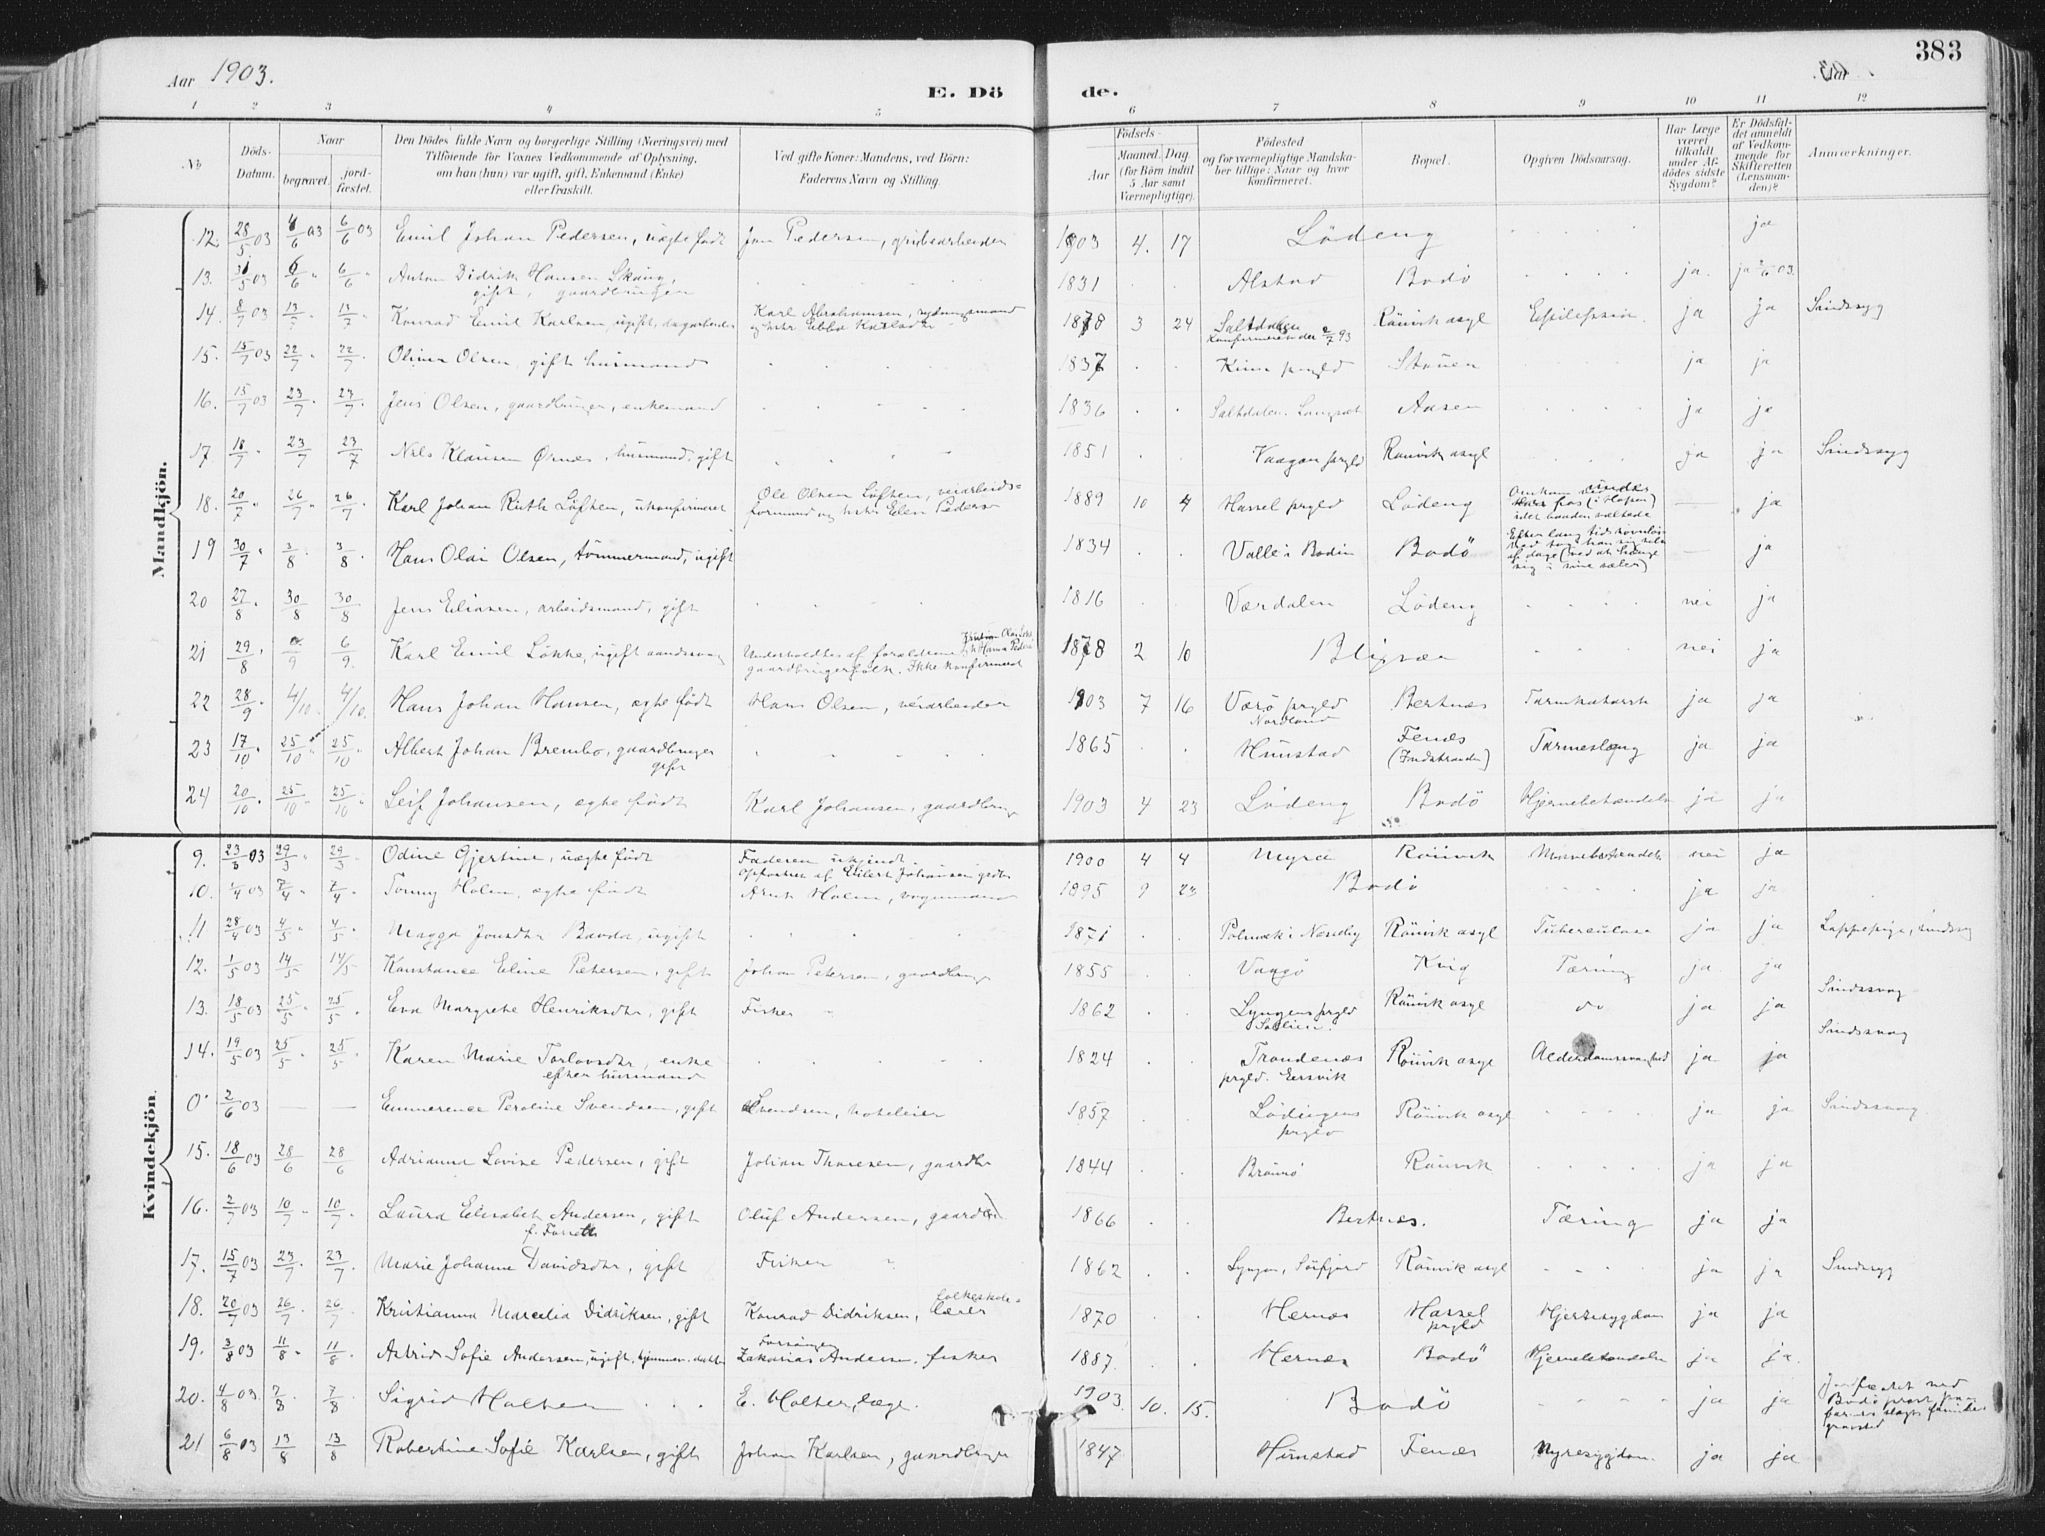 Aar 1903.
E. Dö de.
383
1 2 3 4 5 6 7 8 9 10 11 12
No
Döds-Datum.
Naar begravet. jordfæstet.
Den Dödes fulde Navn og borgerlige Stilling (Næringsvei) med Tilföiende for Voxnes Vedkommende af Oplysning, om han (hun) var ugift, gift, Enkemand (Enke) eller fraskilt.
Ved gifte Koner: Mandens, ved Börn: Faderens Navn og Stilling.
Födsels- Aar Maaned. Dag. (for Börn indtil 5 Aar samt Værnepligtige).
Födested og for værnepligtige Mandskaber tillige: Naar og hvor konfirmeret.
Bopæl.
Opgiven Dödsaarsag.
Har Læge været tilkaldt under Afdödes sidste Sygdom?
Er Dödsfaldet anmeldt af Vedkommende for Skifteretten (Lensmanden)?
Anmærkninger.
Mandkjön.
12. 28/5 03 6/6 03 6/6 03 Emil Johan Pedersen, uægte født Pedersen, 1903 4. 17 Lödeng ja
13. 31/5 03 6/6 " 6/6 " Anton Didrik Hansen Skaug, gift, gaardbruger 1831 Alstad Bodö ja. ja 03.
14. 8/7 03 13/7 " 13/7 Konrad Emil Karlsen, ugift, dagarbeider Karl Abrahamsen, rydningsmand og hstr Ebba Karlsdtr 1878 3 24 Saltdalen Konfirmeret der 2/7 93 Rönvik asyl Epilepsie. ja ja Sindssyg
15. 15/7 03 22/7 " 22/7 Oliver Olsen, gift husmand 1837 prgld Stöuer ja ja
16. 15/7 03 23/7 23/7 Jens Olsen, gaardbruger, enkemand 1836 Saltdalen. Langset Aasen ja ja
17. 18/7 " 23/7 23/7 Nils Klausen Ørnes, husmand, gift 1851 Vaagan prgld Rönvik asyl ja ja Sindssyg
18. 20/7 " 26/7 26/7 Karl Johan Ruth Löften, ukonfirmeret Ole Olsen Löften, veiarbeidsformand og hstr Elen Pedersd 1889 10 4 Hassel prgld Lödeng Omkom under fos (i Hopen) idet baaden væltede — ja
19 30/7 " 3/8 3/8 Hans Olai Olsen, tömmermand, ugift 1834 Valle i Bodin Bodö Efter lang tids sövnlöshed tog han sig selv af dage (ved at hænge sig i sine sæler) — ja
20 27/8 " 30/8 30/8 Jens Eliasen, arbeidsmand, gift 1816 Værdalen Lödeng nei ja
21 29/8 6/9 6/9. Karl Emil Løkke, ugift aandssvag Underholdtes af forældrene Kristian Olai Løkke Hanna Peders gaardbrugerfolk. Ikke konfirmeret 1878 2 10 Bligvær nei ja
22 28/9 " 4/10. 4/10. Hans Johan Hansen, ægte født Hans Olsen, veiarbeider 1903 7 16 Værö prgld Nordland Bertnæs Tarmkatarrh ja ja
23 17/10 " 25/10 " 25/10 " Albert Johan Brembo, gaardbruger gift 1865 Hunstad Fenæs (Indstranden) Tarmeslyng ja ja
24 20/10 " 25/10 " 25/10 " Leif Johansen, ægte født Karl Johansen, gaardbrug 1903 4 23 Lödeng Bodö Hjernebetændelse ja ja
Kvindekjön.
9. 23/3 03 29/3 " 29/3 Odine Gjertine, uægte født Faderen ukjendt opfostret af Eilert Johansen 1900 4 4 Myra Rönvik nei ja
10. 1/4 03 7/4 7/4 Tonny Holm, ægte født Holm, vognmand 1895 9 23 Bodö ja ja
11 28/4 03 4/5 " 4/5 Magga Jonsdtr Bavda, ugift 1871 Polmak i Næseby Rönvik asyl Tuberculose ja ja Lappepige, sindssyg
12. 1/5 03 14/5 14/5 Konstance Eline Petersen, gift Johan Petersen, gaardbrug 1855 Vaagö Kvig Tæring ja. ja
13. 18/5 03 25/5 " 25/5 Eva Margrete Henriksdtr, gift Fisker 1862 Lyngens prgld Rönvik asyl do ja ja Sindssvag
14. 19/5 03 25/5 " 25/5 Karen Marie Torlovsdtr, enke efter husmand 1824 Trondenæs prgld. Rönvik asyl Alderdomssvaghed ja ja Sindssvag
0 2/6 03 — — Emmerence Peroline Svendsen, gift Svendsen, hoteleier 1857 Lödingens prgld Rönvik asyl ja ja Sindssvag
15. 18/6 03 28/6 28/6 Adrianna Lovise Pedersen, gift Johan Thoresen, gaardbr 1844 Brönnö Rönvik ja ja
16. 2/7 03 10/7 10/7 Laura Elisabet Andersen, gift Oluf Andersen, gaardbr 1866 Bertnæs. Tæring ja ja
17. 15/7 03 23/7. 23/7. Marie Johanne Davidsdtr, gift Fisker " 1862 Lyngen, Sörfjord Rönvik asyl ja ja Sindssyg
18. 20/7 03 26/7 " 26/7 Kristianna Marcelia Didriksen, gift Konrad Didriksen, folkeskolelærer 1870 Hernæs Hassel prgld Hjertesygdom ja ja
19. 3/8 03 11/8 " 11/8 Astrid Sofie Andersen, ugift, hjemmev. datter Forsanger Zakarias Andersen, fisker 1887 Hernæs Bodö Hjernebetændelse ja ja.
20. 4/8 03 7/8 7/8 Sigrid Holter E. Holter, læge. 1903. 10. 15. Bodö ja ja jordfæstet ved Bodö familiegravsted
21 6/8 03 13/8 13/8 Robertine Sofie Karlsen, gift Johan Karlsen, gaardbruger 1847 Hunstad Fenæs Nyresygdom. ja ja